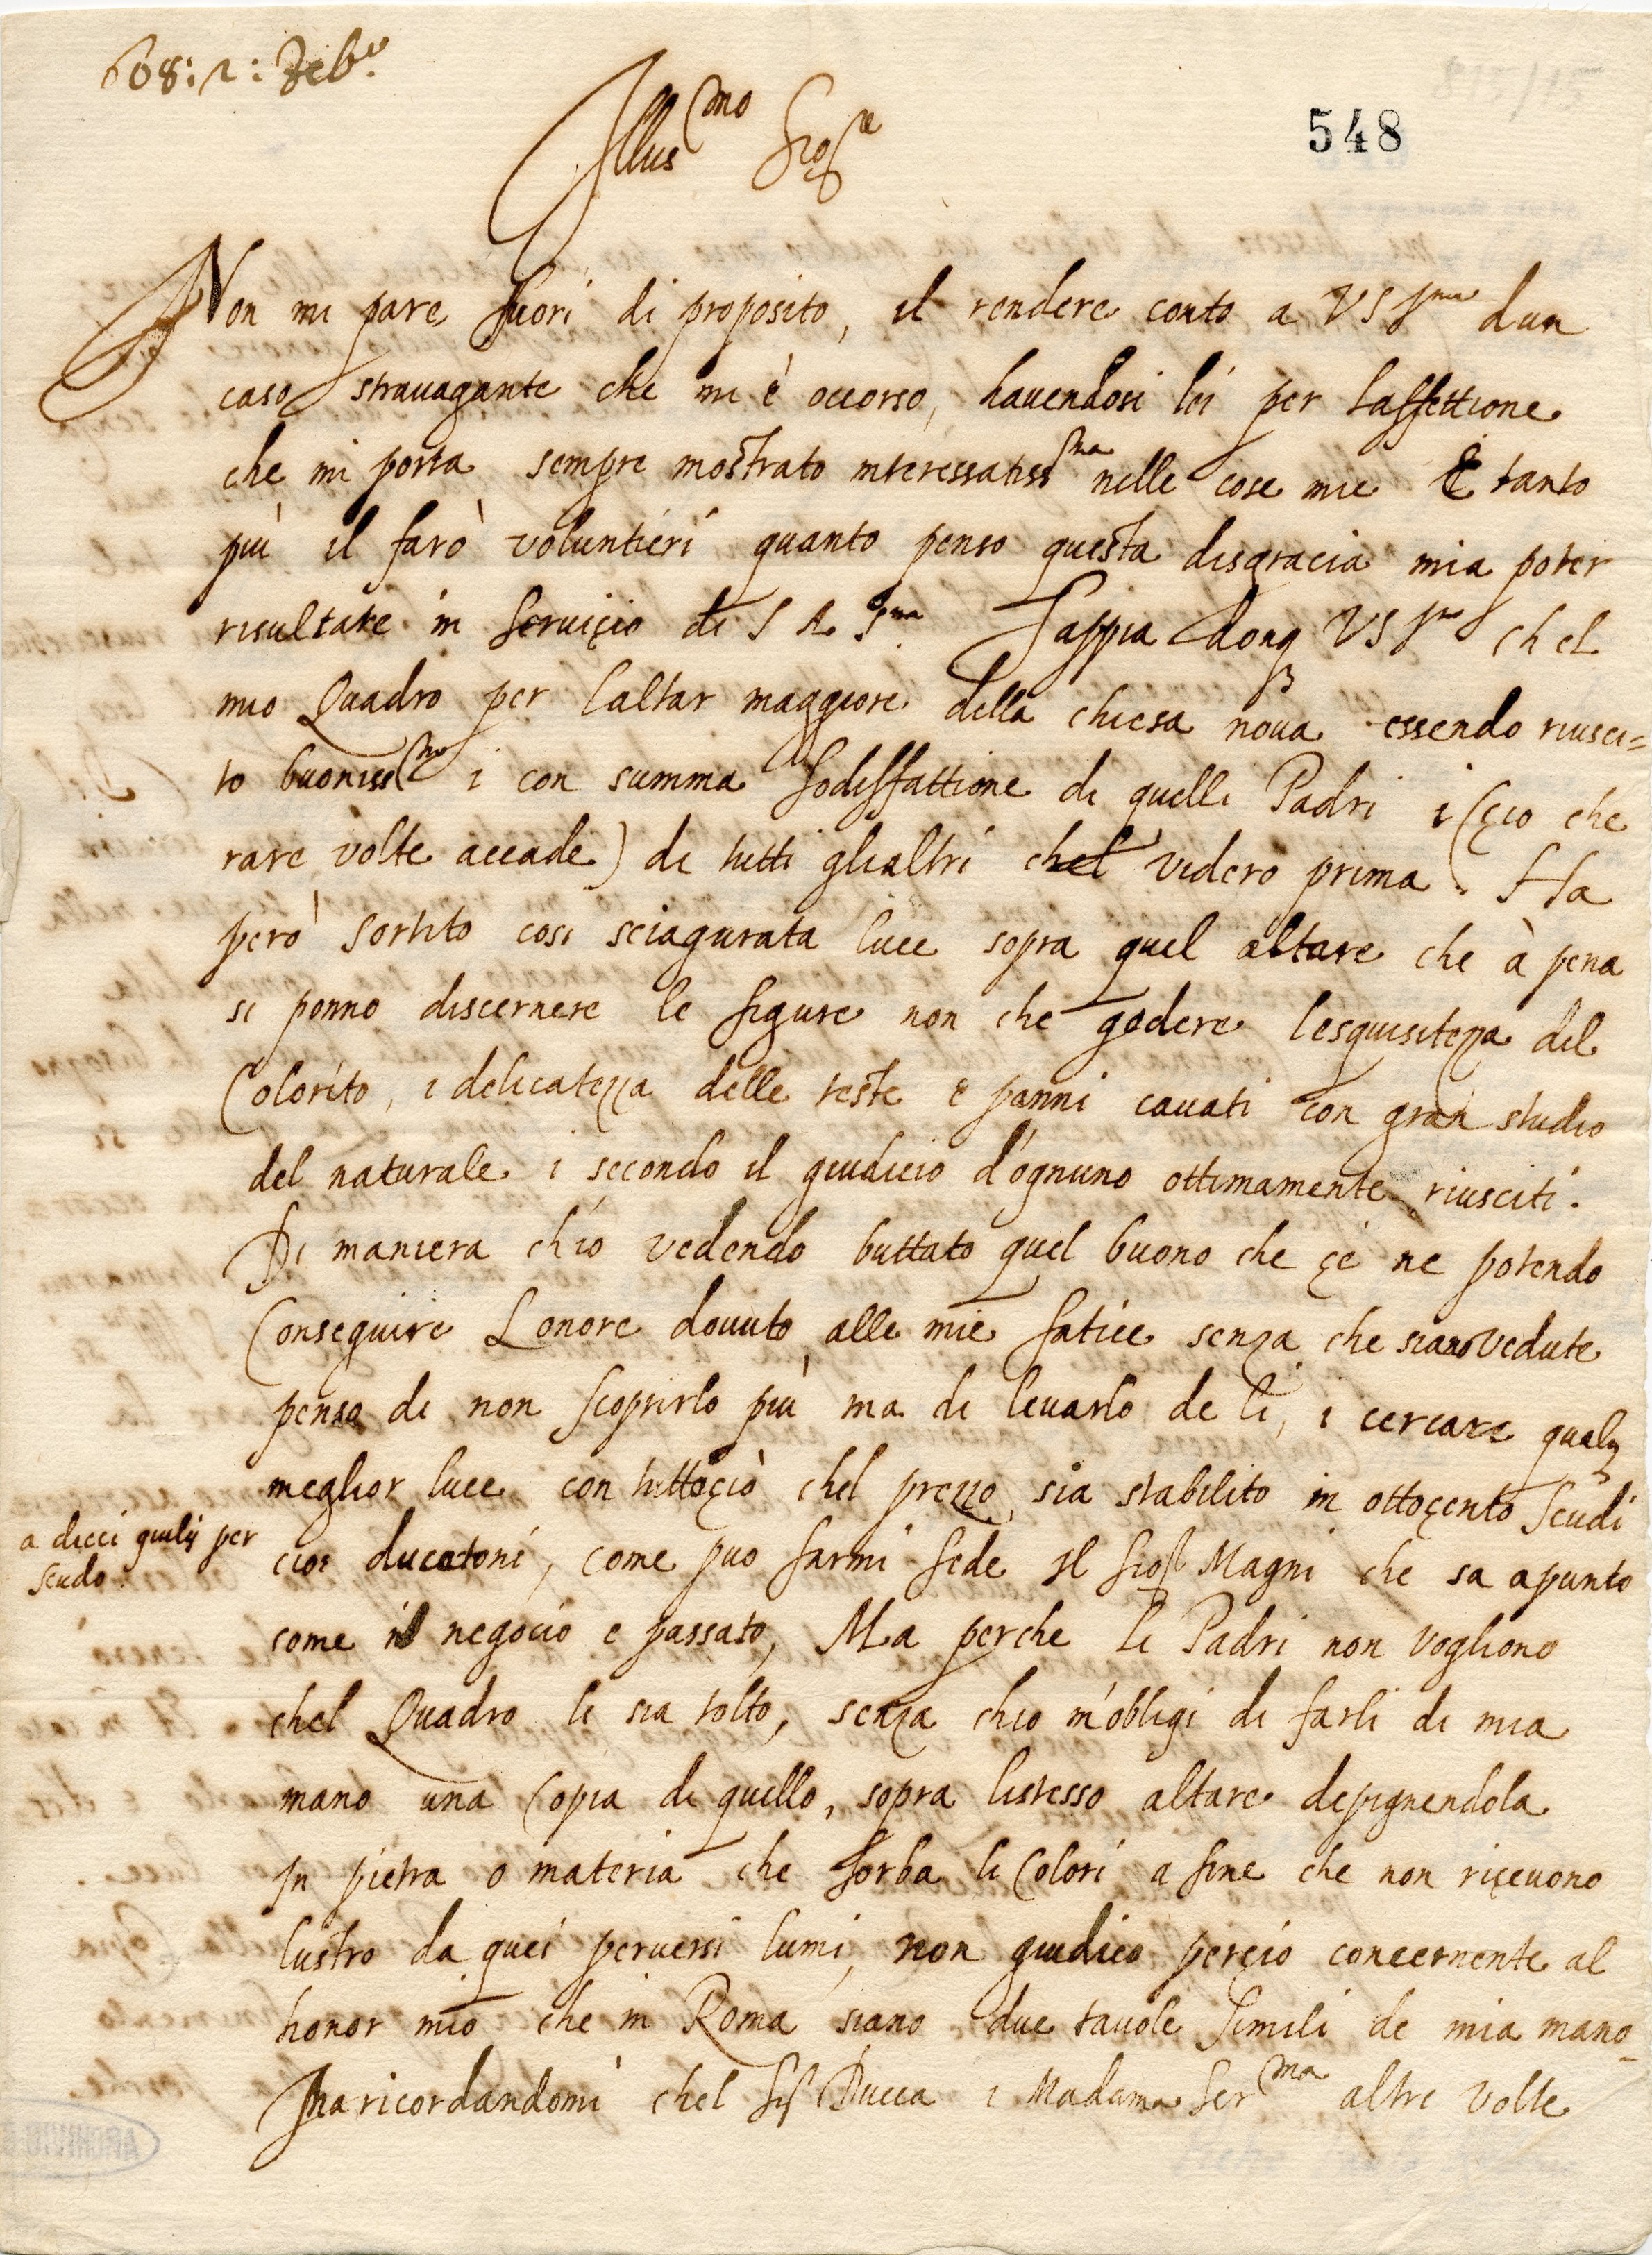 608: 2: Feb.o
548
Illus.mo Sig.re
Non mi pare fuori di proposito, il rendere conto a VS Ill.ma dun
caso stravagante che mi è occorso, havendosi lei per l'affettione
che mi porta sempre mostrato interessatiss.ma nelle cose mie E tanto
più il farò voluntieri quanto penso questa disgracia mia poter
risultare in servicio di S A S.ma. Sappia donq VS Ill.ma chel
mio Quadro per l'altar maggiore della chiesa nova essendo riusci=
to buoniss.mo i con summa sodisfattione di quelli Padri i (çio che
rare volte accade) di tutti glialtri chel videro prima. Ha
però sortito cosi sciagurata luce sopra quel altare che à pena
si ponno discernere le figure non che godere l'esquisitezza del
Colorito, i delicatezza delle teste e panni cavati con gran studio
del naturale i secondo il giudicio d'ognuno ottimamente riusciti.
Di maniera ch'io vedendo buttato quel buono che çe ne potendo
Conseguire L'onore dovuto alle mie fatice senza che siano vedute
penso di non scoprirlo più ma di levarlo de li, i cercare qualq
meglior luce con tuttoçiò chel prezzo sia stabilito in ottoçento Scudi
a dieci giulij per
scudo.
cioe ducatoni, come puo farmi fede il Sig Magni che sa apunto
come il negocio e passato, Ma perche li Padri non vogliono
chel Quadro li sia tolto, senza chio m'obligi di farli di mia
mano una Copia di quello, sopra listesso altare depignendola
In pietra o materia che sorba li Colori a fine che non riçevono
lustro da quei perversi lumi, non giudico perçio concernente al
honor mio che in Roma siano due tavole simili de mia mano
Ma ricordandomi chel Sig Ducca i Madama Ser.ma altre volte